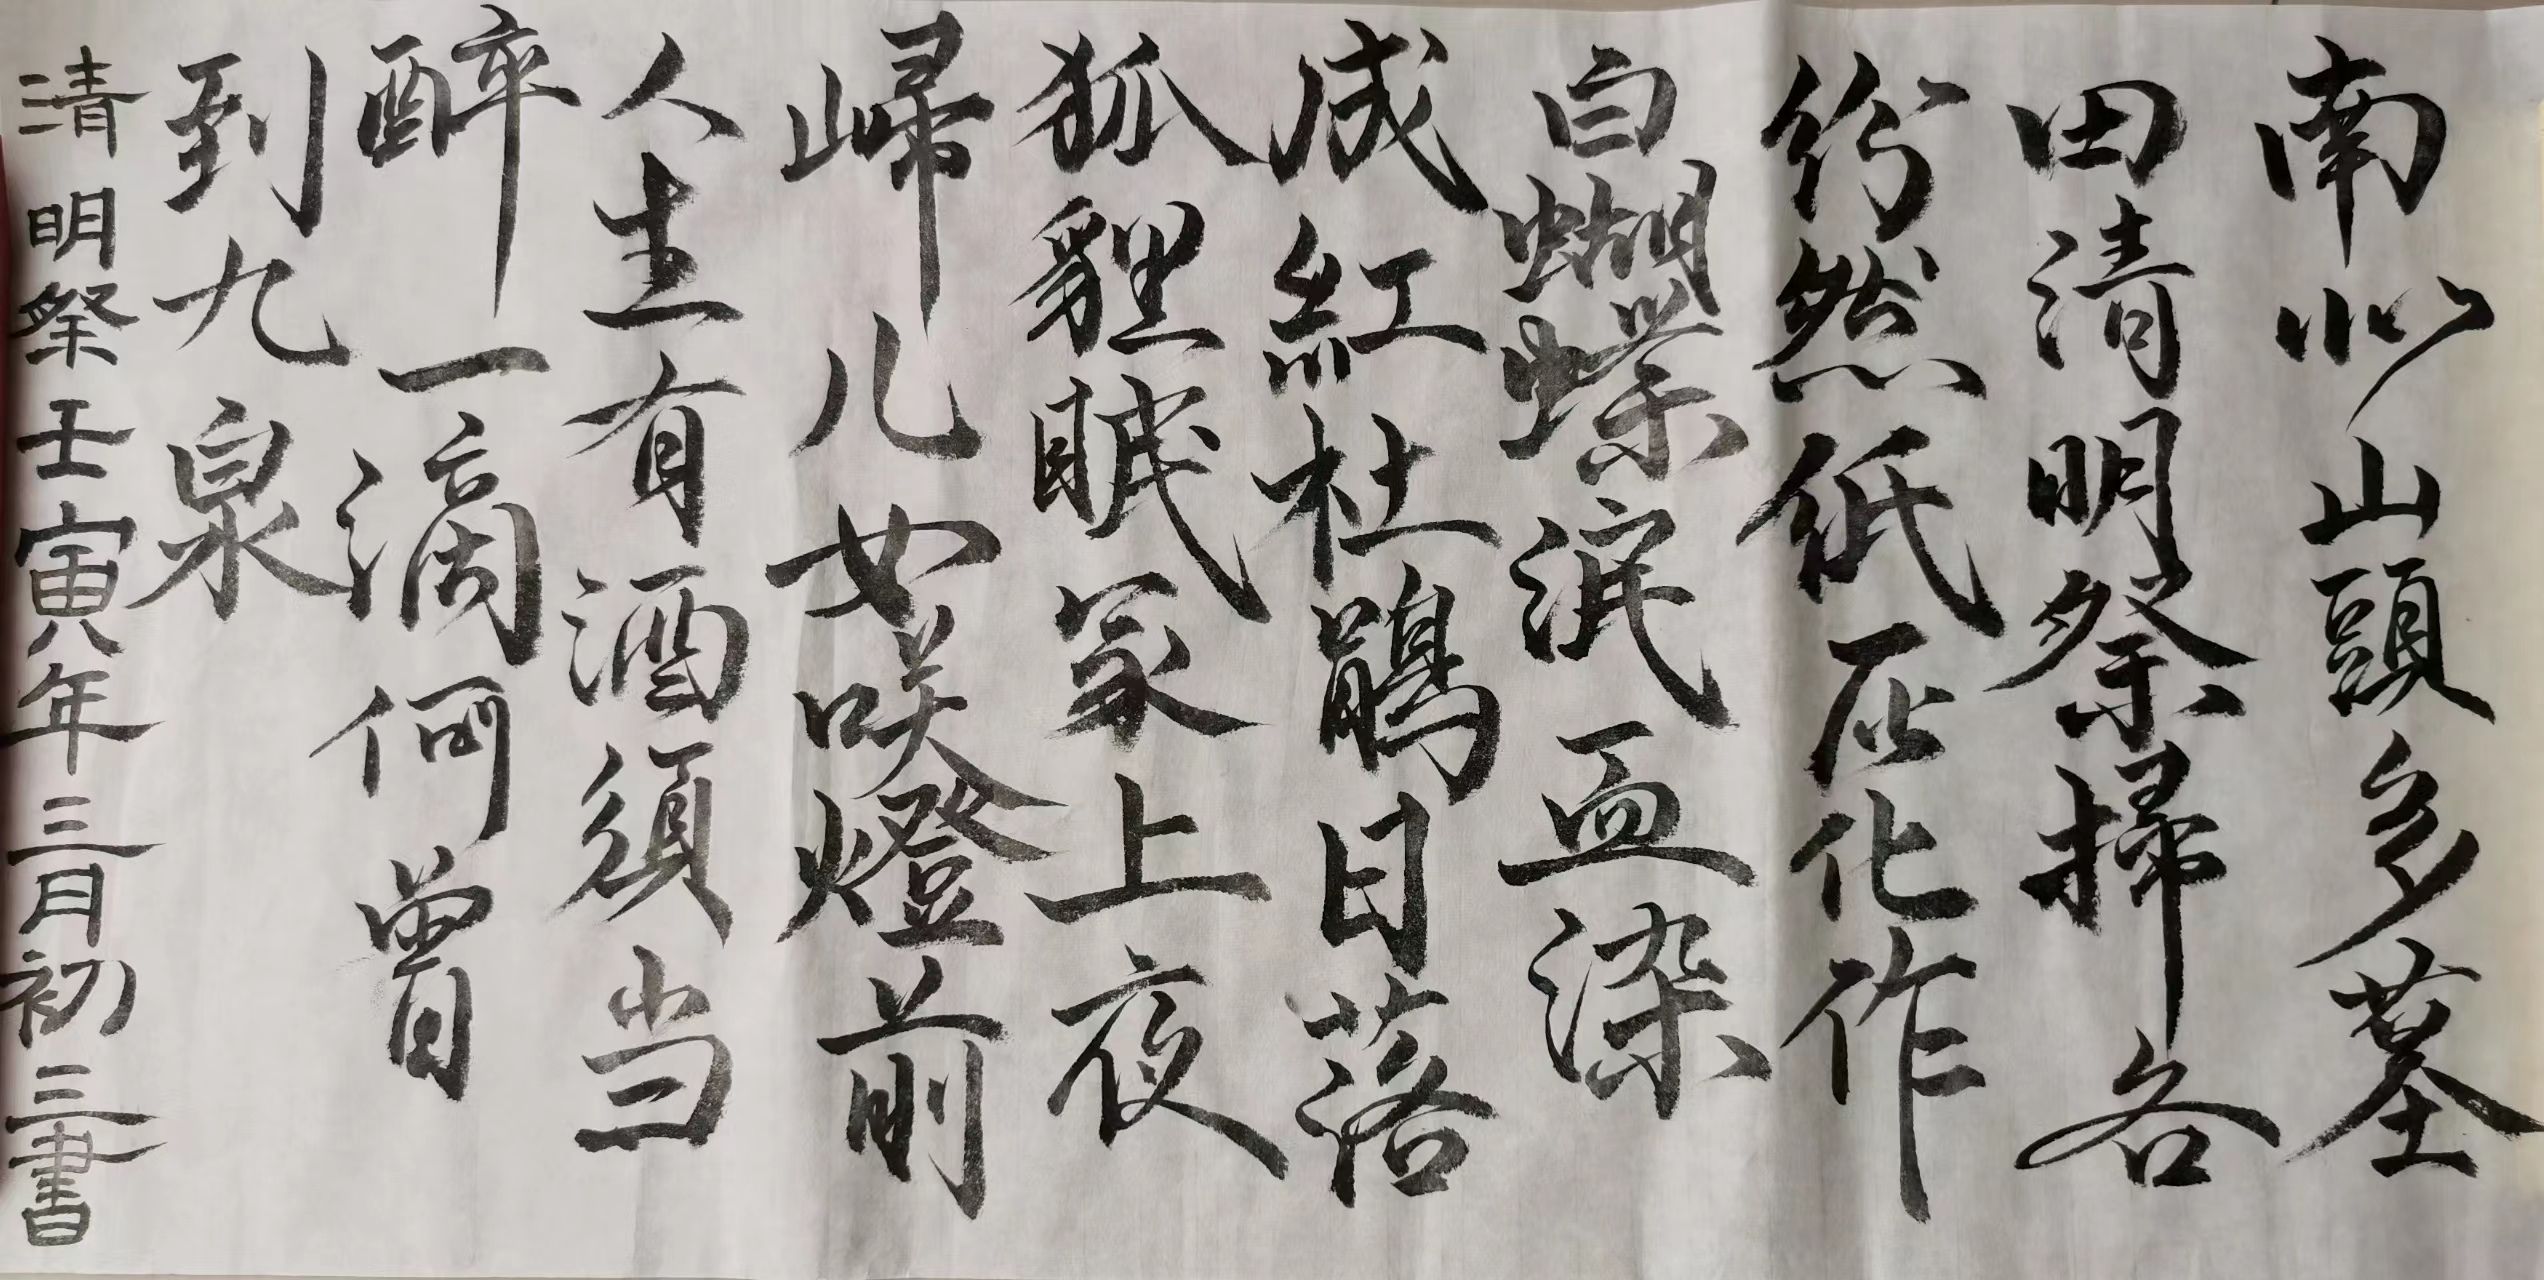 南北山頭多墓
田清明祭掃各
紛然紙灰化作
白蝴蝶淚血染
成紅杜鵑日落
狐貍眠冢上夜
歸儿女咲燈前
人生有酒須当
醉一滴何曾
到九泉
清明祭壬寅年三月初三書